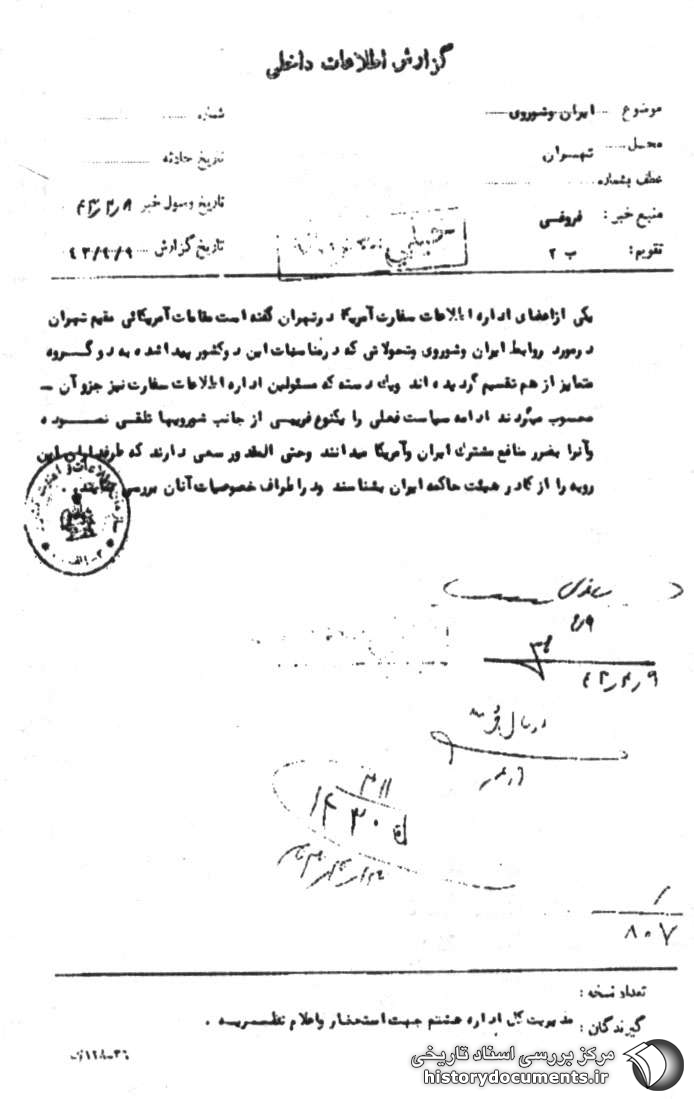 گزارش اطلاعات داخلی
موضوع ایران وشوروی
شماره
محل تهران
تاریخ حادثه
عطف بشماره
تاریخ وصول خبر ۴۳/۴/۸
منبع خبر: فروفسی
خیلی محرمانه
تاریخ گزارش ۴۳/۴/۹
تقویم: ب ۲
یکی ازاعضای اداره اطلاعات سفارت آمریکا درتهران گفته است مقامات آمریکائی مقیم تهران
درمورد روابط ایران وشوروی وتحولاتی که درمناسبات این دوکشور پیداشده به دو گـــروه
متمایز از هم تقسیم گردیده اند ویک دسته که مسئولین اداره اطلاعات سفارت نیز جزو آن -
محسوب میگردند ادامه سیاست فعلی را یکنوع فریبی از جانب شورویها تلقی نمـــوده
وآنرا بضرر منافع مشترک ایران وآمریکا میدانند وحتی المقدور سعی دارند که طرفداران این
رویه را از کادر هیئت حاکمه ایران بشناسند ودراطراف خصوصیات آنان بررسی نمایند .
۴۳/۴/۹
۳۱۱
۸۰۷
تعداد نسخه :
گیرندگان : مدیریت کل اداره هشتم جهت استحضار واعلام نظـــریـــه .
مرکز بررسی اسناد تاریخی
historydocuments.ir